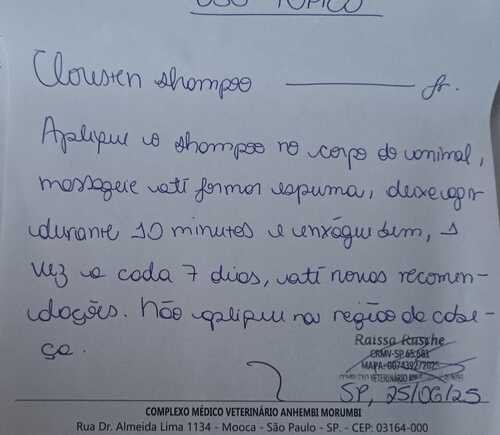 USO TÓPICO
Clorsten shampoo ——— fr.
Aplique o shampoo no corpo do animal,
massageie até formar espuma, deixe agir
durante 10 minutos e enxágue bem, 1
vez a cada 7 dias, até novas recomen-
dações. Não aplique na região da cabe-
ça.
Raissa Rusche
CRMV-SP 65.681
SP, 25/06/25
COMPLEXO MÉDICO VETERINÁRIO ANHEMBI MORUMBI
Rua Dr. Almeida Lima 1134 - Mooca - São Paulo - SP. - CEP: 03164-000